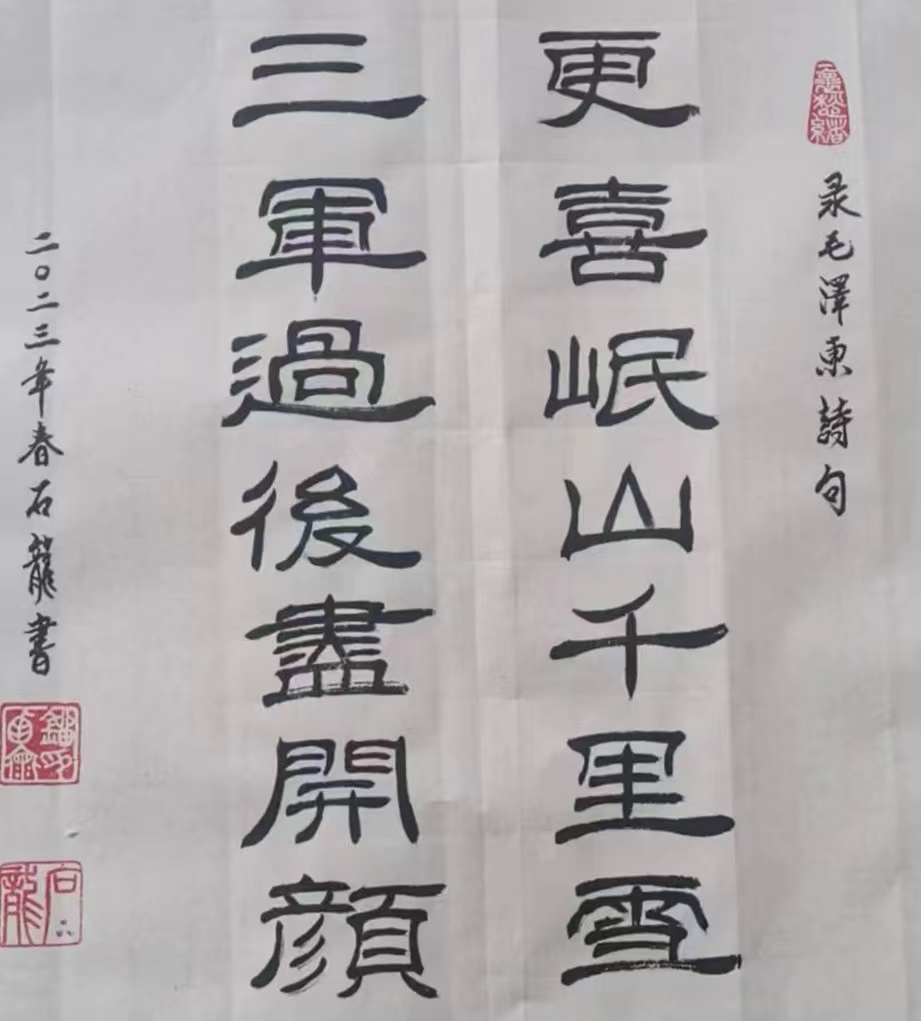 录毛澤東詩句
更喜岷山千里雪
三軍過後盡開顔
二〇二三年春石龍書
石龍